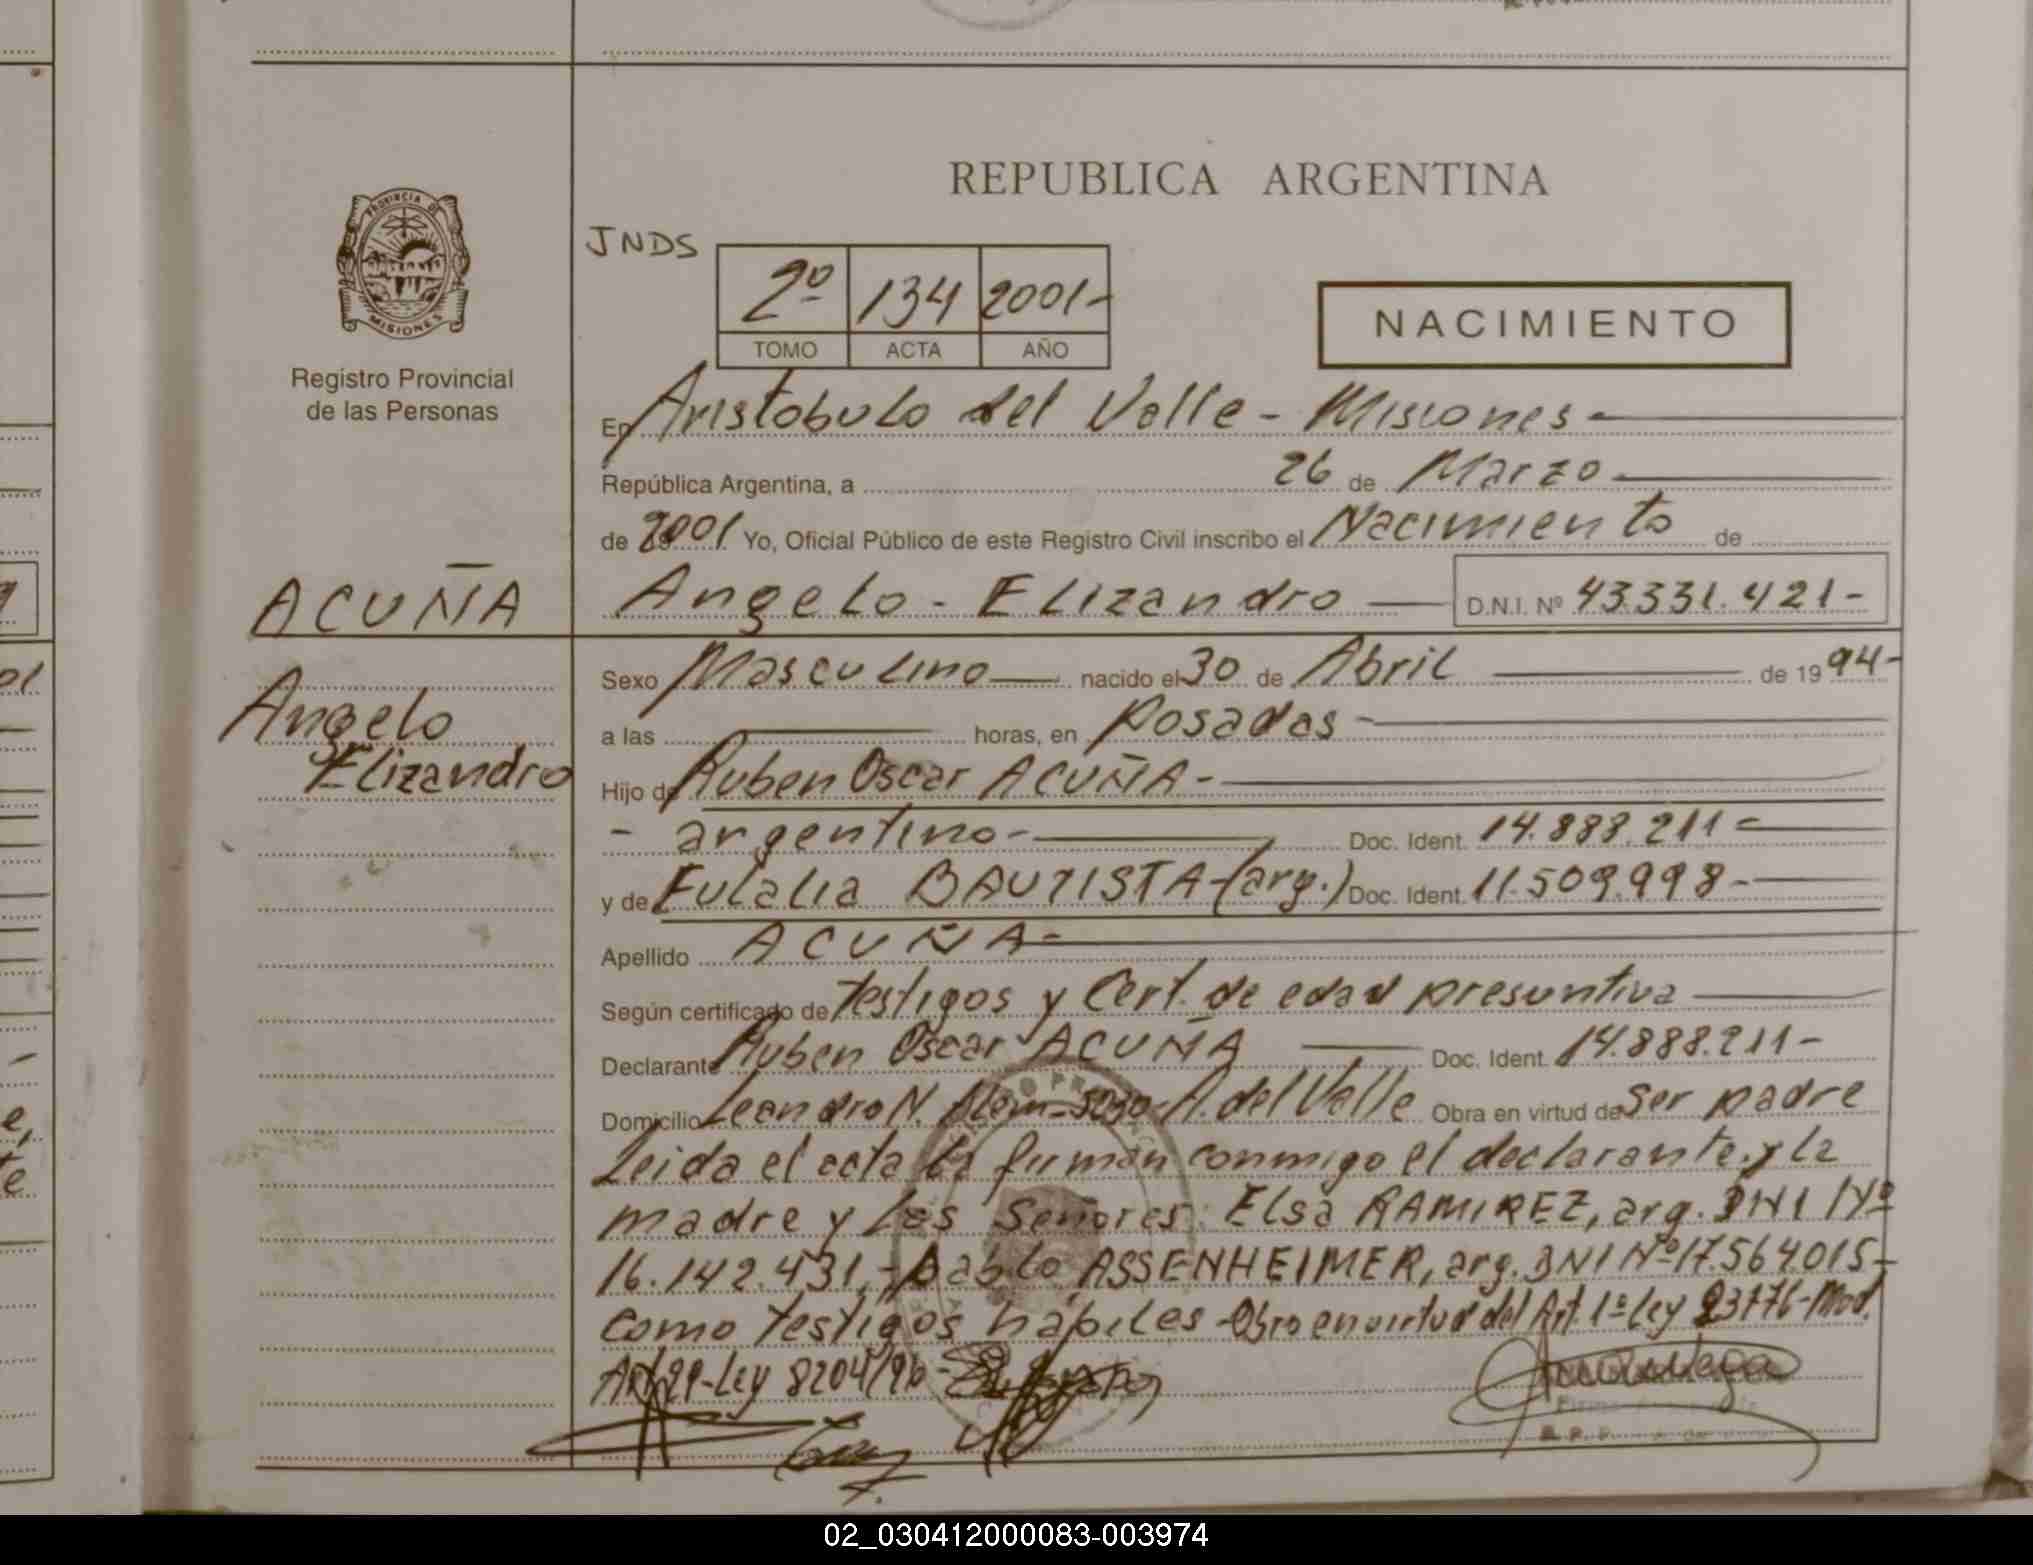 REPUBLICA ARGENTINA
PROVINCIA DE
MISIONES
Registro Provincial
de las Personas
JNDS
2º 134 2001-
TOMO ACTA AÑO
NACIMIENTO
En Aristobulo del Valle - Misiones
República Argentina, a 26 de Marzo
de 2001 Yo, Oficial Público de este Registro Civil inscribo el Nacimiento de
ACUÑA
Angelo - Elizandro D.N.I. Nº 43.331.421-
Angelo
Elizandro
Sexo Masculino nacido el 30 de Abril de 1994-
a las horas, en Posadas -
Hijo de Ruben Oscar ACUÑA -
- argentino - Doc. Ident. 14.888.211 -
y de Eulalia BAUTISTA - (arg.) Doc. Ident. 11.509.998 -
Apellido ACUÑA -
Según certificado de testigos y Cert. de edad presuntiva
Declarante Ruben Oscar ACUÑA Doc. Ident. 14.888.211 -
Domicilio Leandro N. Alem - A. del Valle Obra en virtud de ser padre
Leida el acta la firman conmigo el declarante, y la
madre y los Señores: Elsa RAMIREZ, arg. DNI Nº
16.142.431, - Pablo ASSENHEIMER, arg. DNI Nº 17.564.015 -
como testigos hábiles - Obro en virtud del Art. 1º Ley 23776 - Mod.
Art. 29 - Ley 8204/96 -
02_030412000083-003974